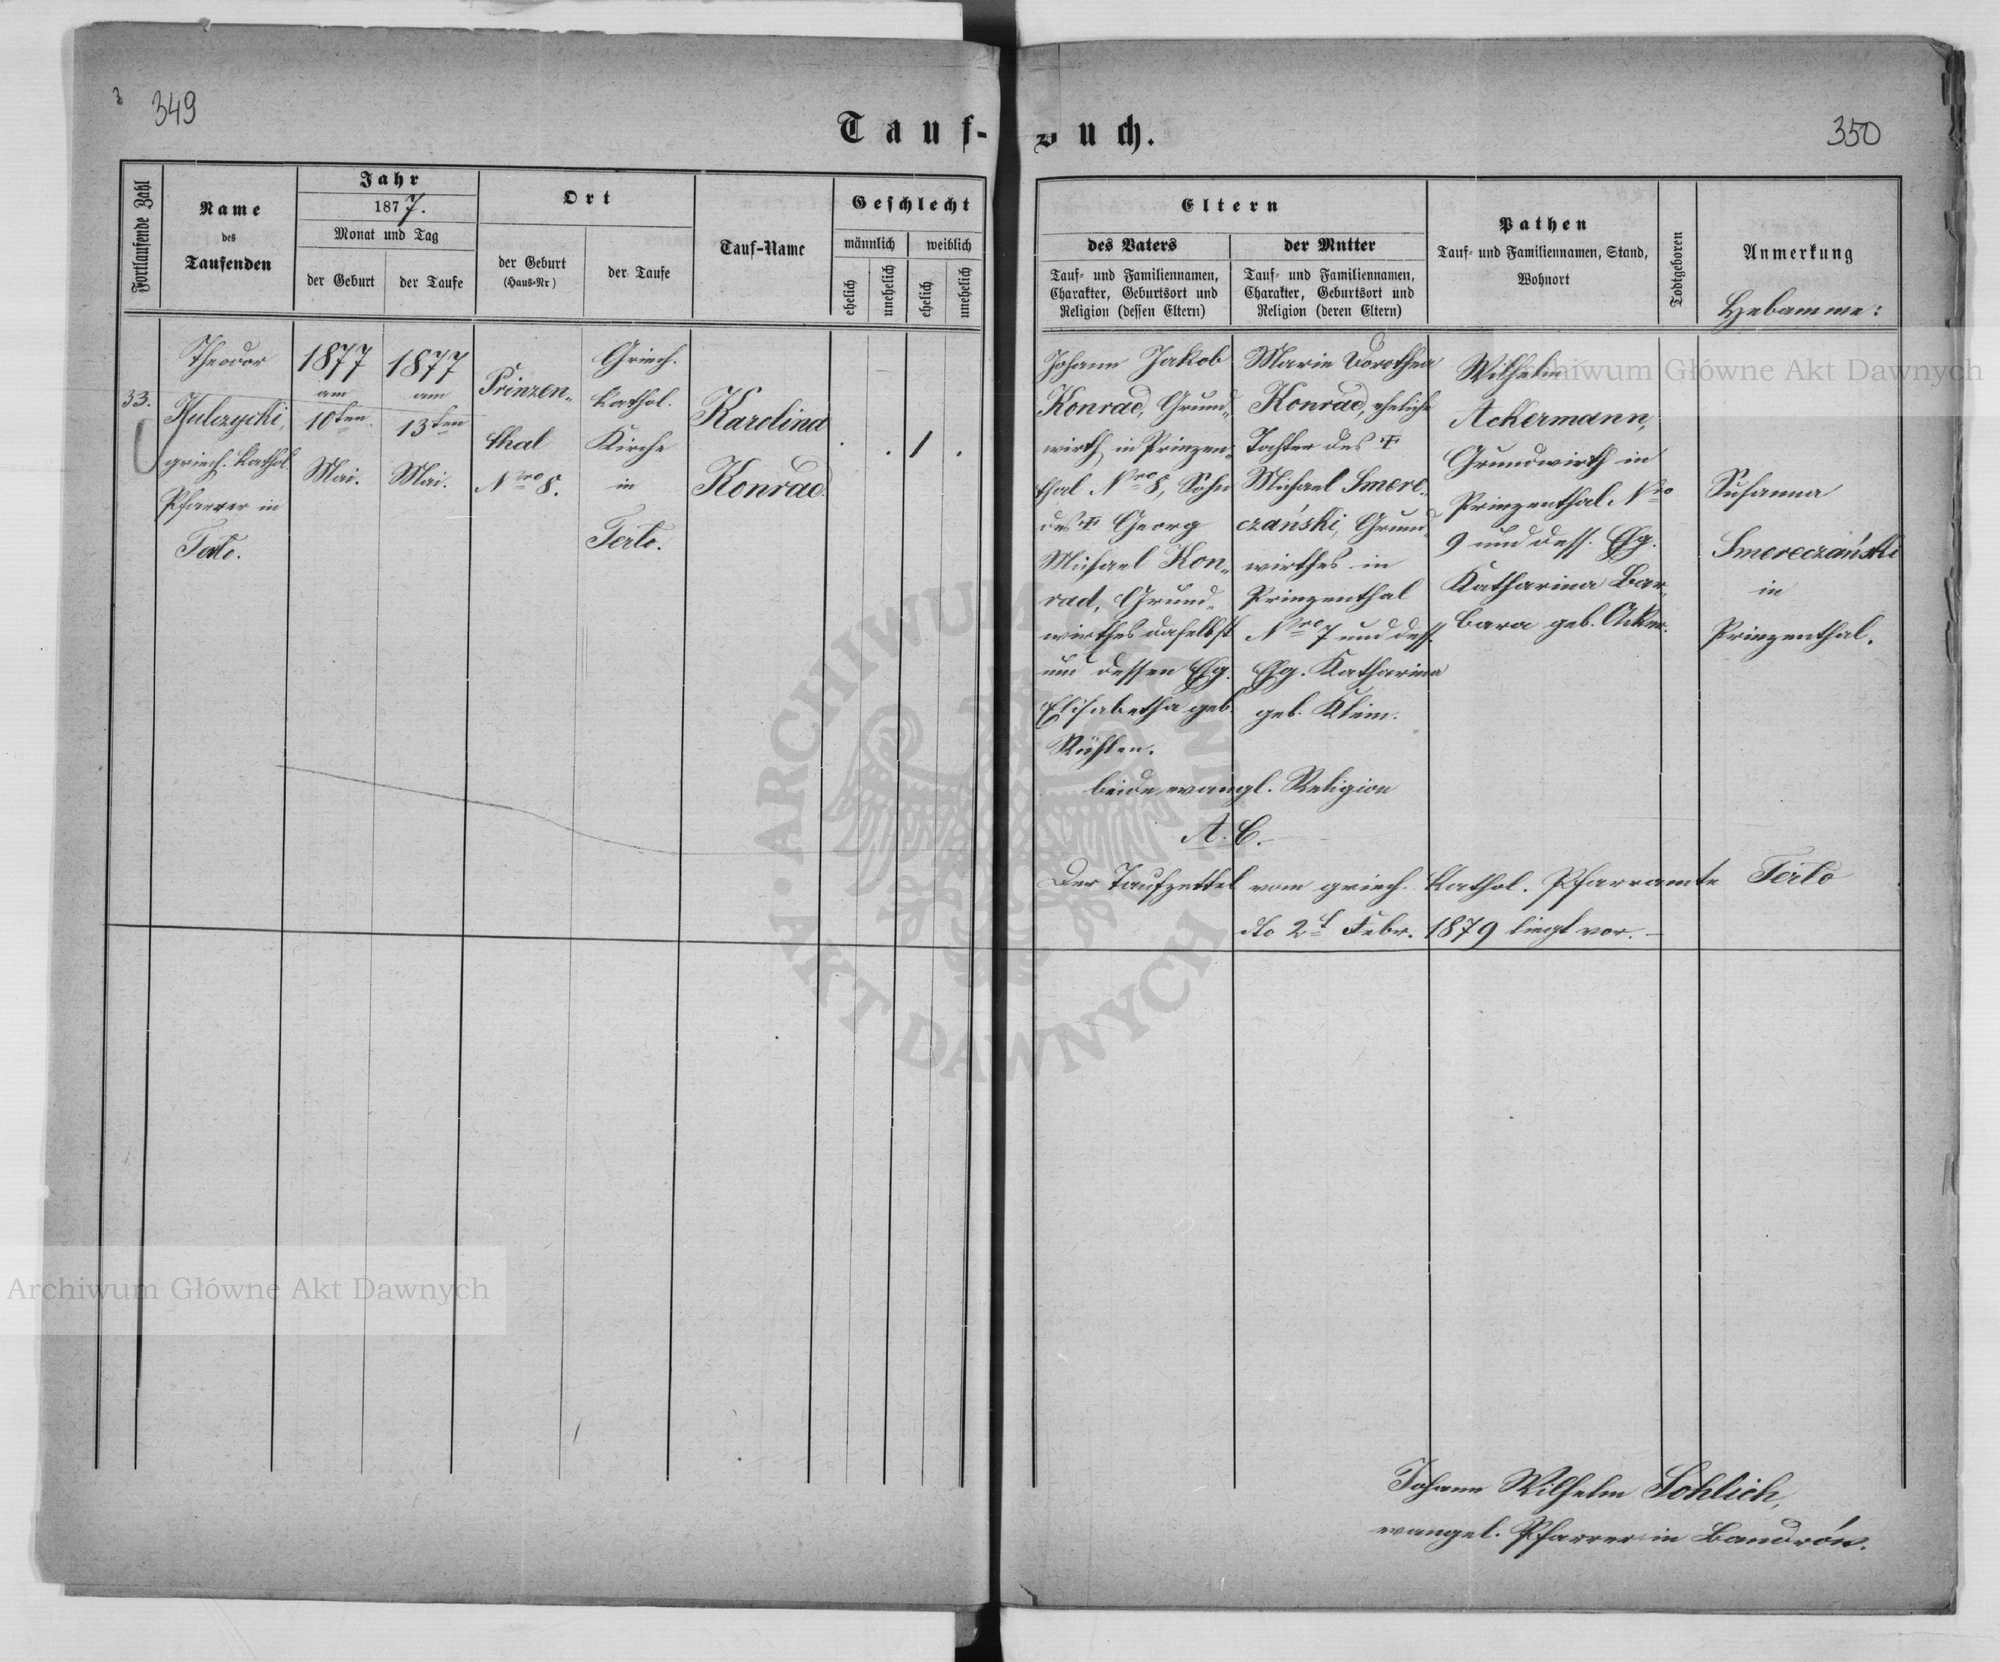 3
349
350
Tauf-
buch.
Fortlaufende Zahl
Name
des
Taufenden
Jahr
1877.
Monat und Tag
der Geburt
der Taufe
Ort
der Geburt
(Haus-Nr)
der Taufe
Tauf-Name
Geschlecht
männlich
weiblich
ehelich
unehelich
ehelich
unehelich
Eltern
des Vaters
der Mutter
Tauf- und Familiennamen,
Charakter, Geburtsort und
Religion (dessen Eltern)
Tauf- und Familiennamen,
Charakter, Geburtsort und
Religion (deren Eltern)
Pathen
Tauf- und Familiennamen, Stand,
Wohnort
Todtgeboren
Anmerkung
Hebamme:
33.
Theodor
Kulczycki,
griech. kathol.
Pfarrer in
Terlo.
1877
am
10ten
Mai.
1877
am
13ten
Mai.
Prinzen-
thal
Nro 8.
Griech.
kathol.
Kirche
in
Terlo.
Karolina
Konrad.
. . 1 .
Johann Jakob
Konrad, Grund-
wirth in Prinzen-
thal Nro 8, Sohn
des † Georg
Michael Kon-
rad, Grund-
wirthes daselbst
und dessen Eg.
Elisabetha geb.
Marie Dorothea
Konrad, eheliche
Tochter des †
Michael Smere-
czański, Grund-
wirthes in
Prinzenthal
Nro 7 und dess.
Eg. Katharina
geb. Klein.
beide evangl. Religion
A. C.
Wilhelm
Ackermann,
Grundwirth in
Prinzenthal Nro
9 und dess. Eg.
Katharina Bar-
bara geb. Acker.
Susanna
Smereczański
in
Prinzenthal.
Der Taufzettel vom griech. kathol. Pfarramte Terlo
dto 2t Febr. 1879 liegt vor.
Johann Wilhelm Sohlich,
evangel. Pfarrer in Bandrów.
Archiwum Główne Akt Dawnych
Archiwum Główne Akt Dawnych
ARCHIWUM GŁÓWNE · AKT DAWNYCH ·